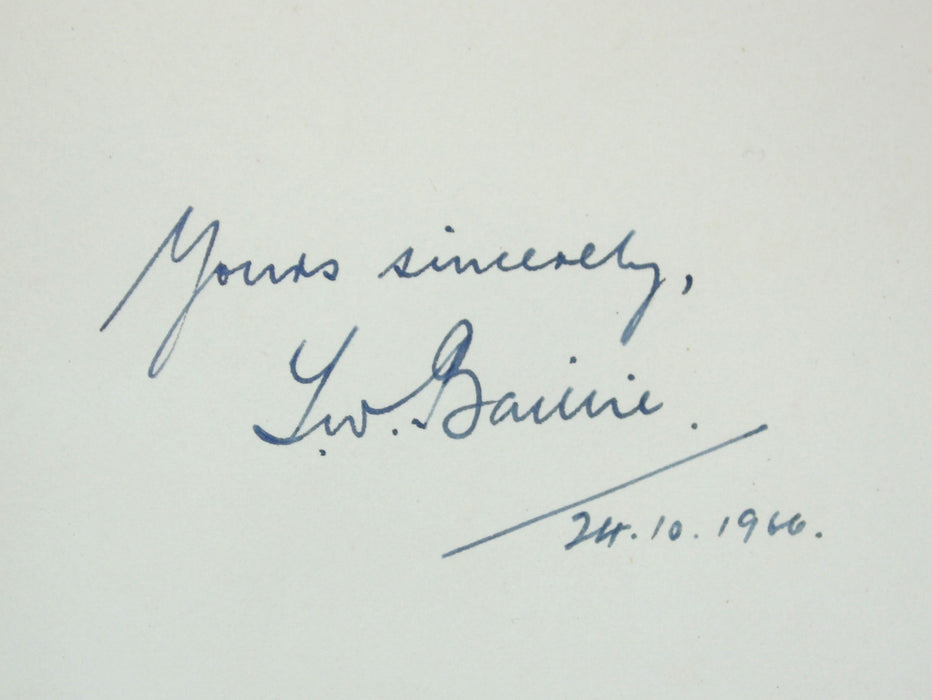 Yours sincerely,
W. Baillie.
24.10.1966.